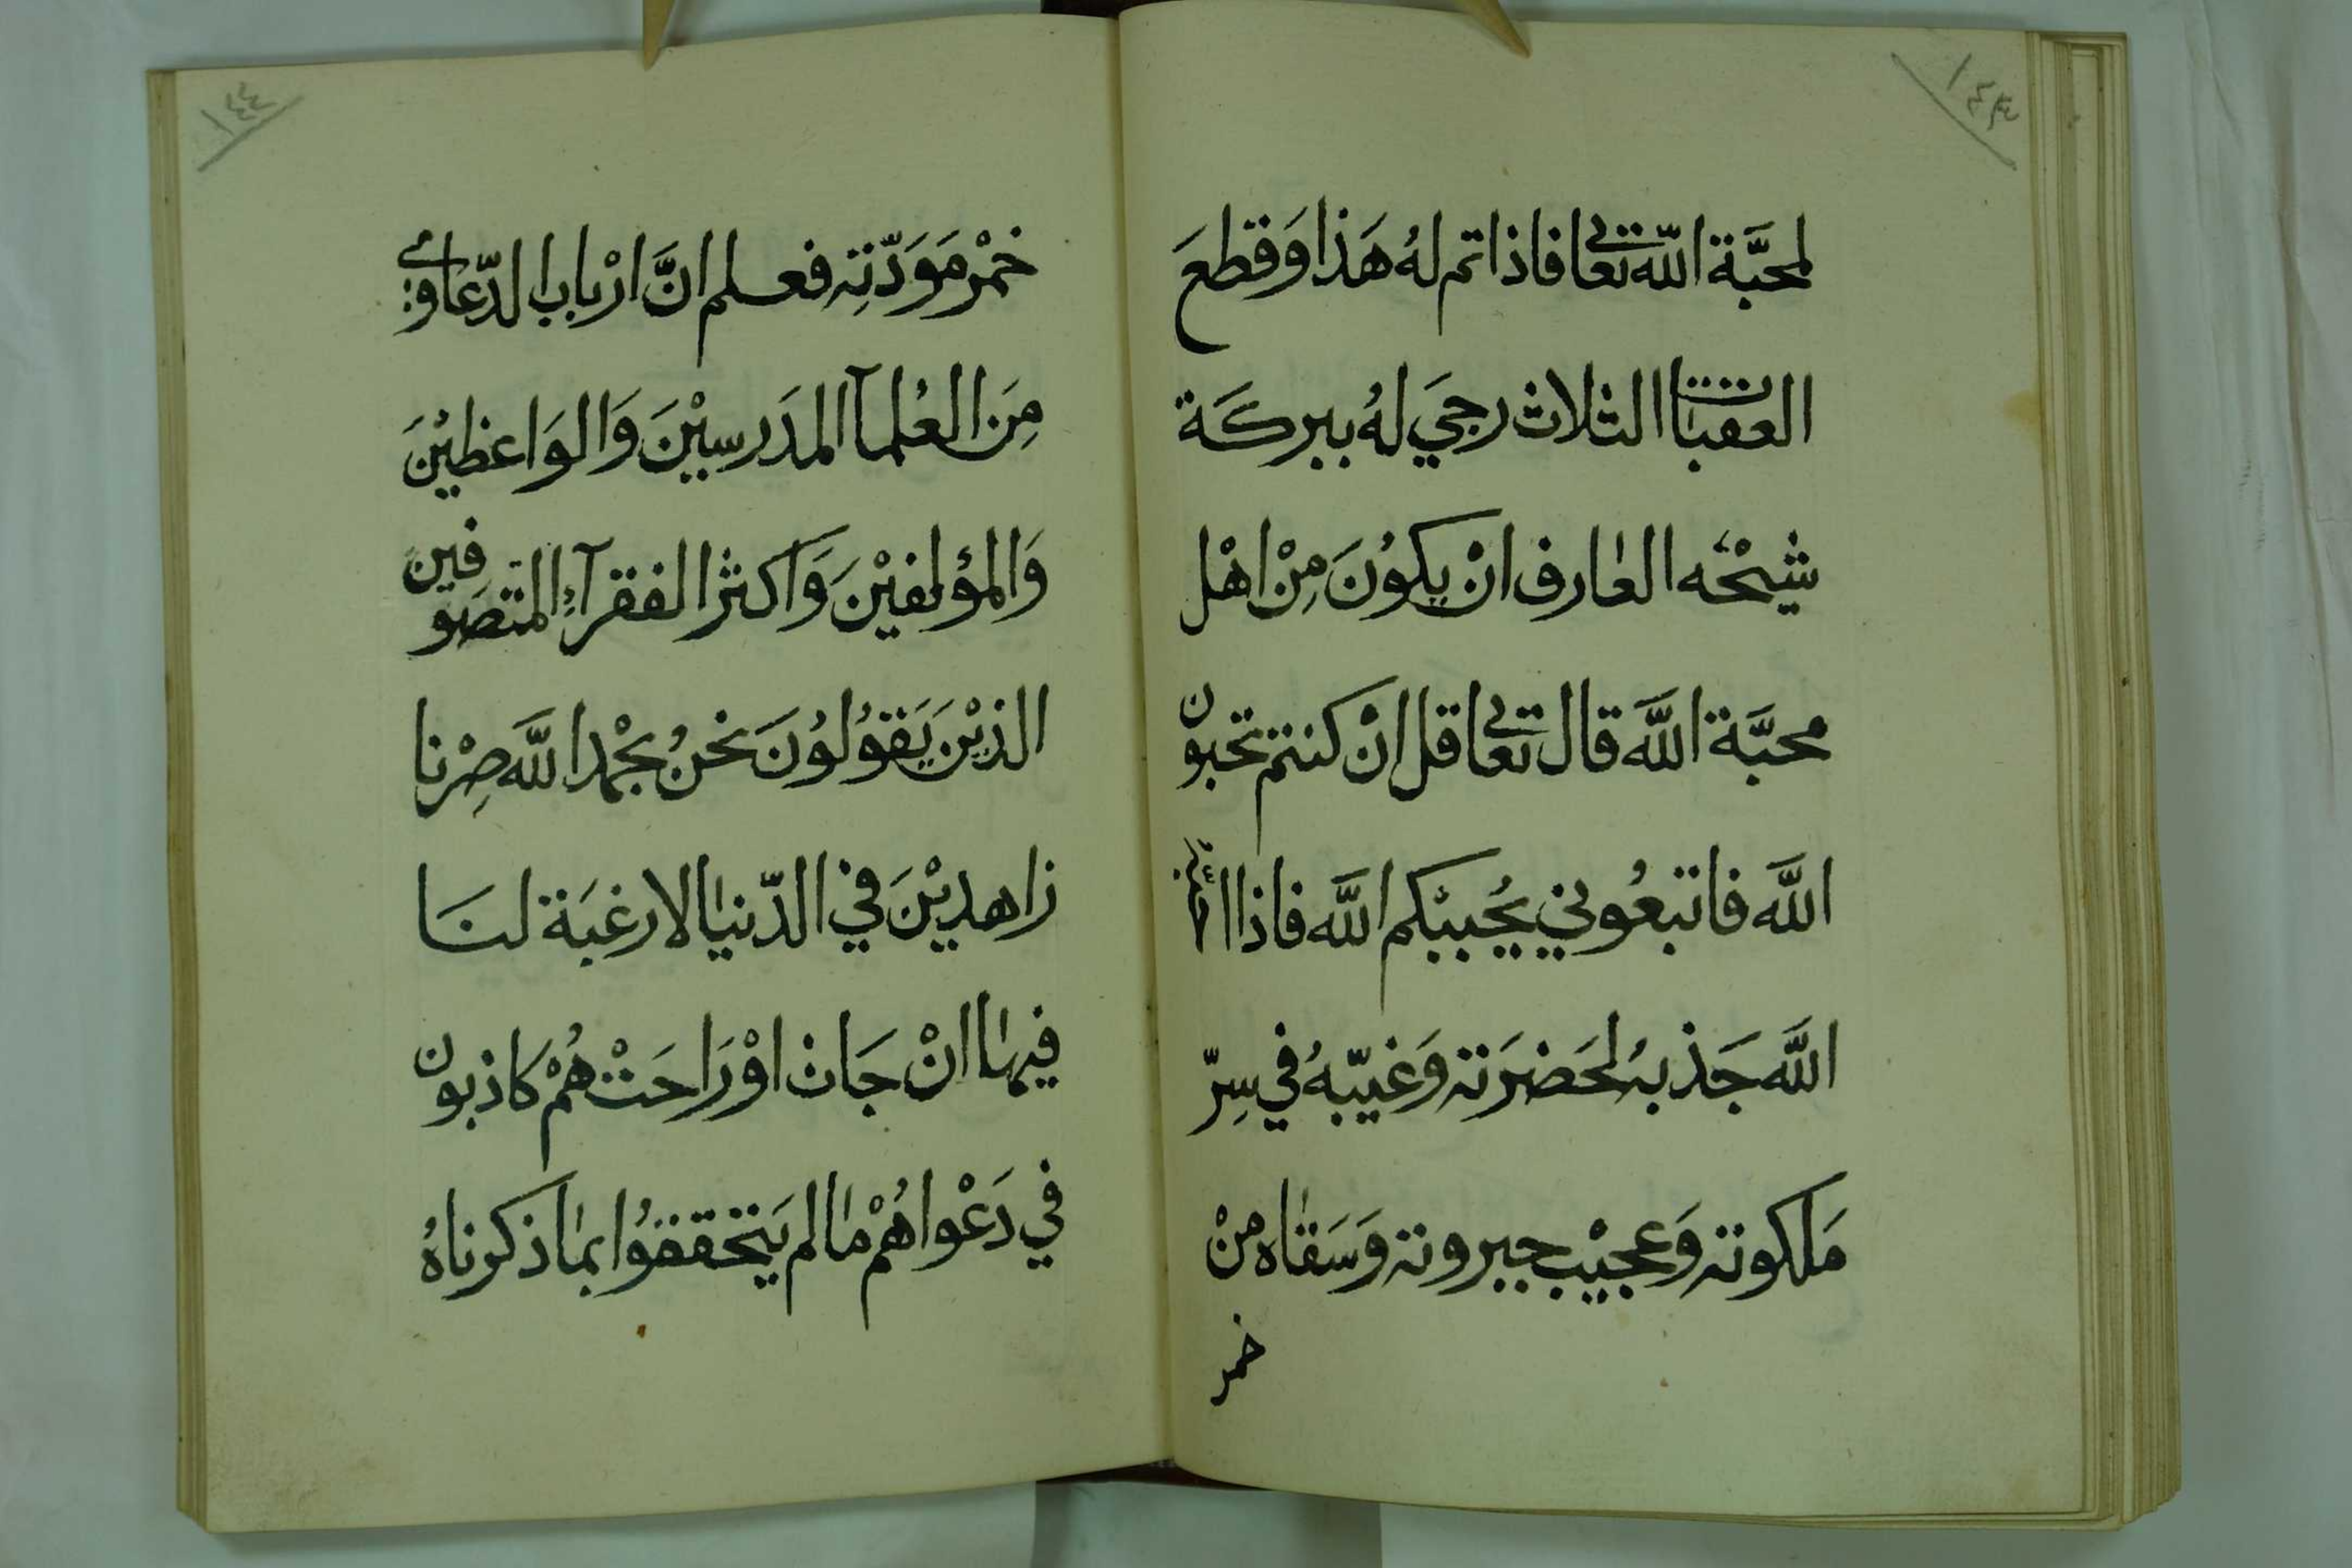 ١٤٣
لمحبَّة اللّه تعالى فاذا تم لهُ هَذا وَقطعَ
العقبات الثلاث رجيَ لهُ ببركَة
شيخْه العارف انْ يكوُنَ مِنْ اهْل
محبَّة اللَّه قال تعالى قل انْ كنتم تحبون
اللَّه فاتبعُوني يُحببْكم اللَّه فاذا
اللَّه جَذبهُ لحَضرَته وَغيّبهُ في سِرّ
مَلكوته وَعجيْب جبروته وَسَقاه منْ
خمر
١٤٤
خمْر مَوَدّتِه فعلم انَّ ارْباب الدّعاوى
مِنَ العُلمآ المدَرسيْنَ وَالوَاعظيْنَ
وَالمؤلفيْنَ وَاكثر الفقرآءِ المتصَوفين
الذيْنَ يَقوُلوُنَ نحنُ بحمْد اللَّه صِرْنا
زاهديْنَ في الدّنيا لا رغبَة لنَا
فيها انْ جَات اوْ رَاحَتْ هُمْ كاذبون
في دَعْواهُمْ ما لم يَتحققوُا بما ذكرناهُ